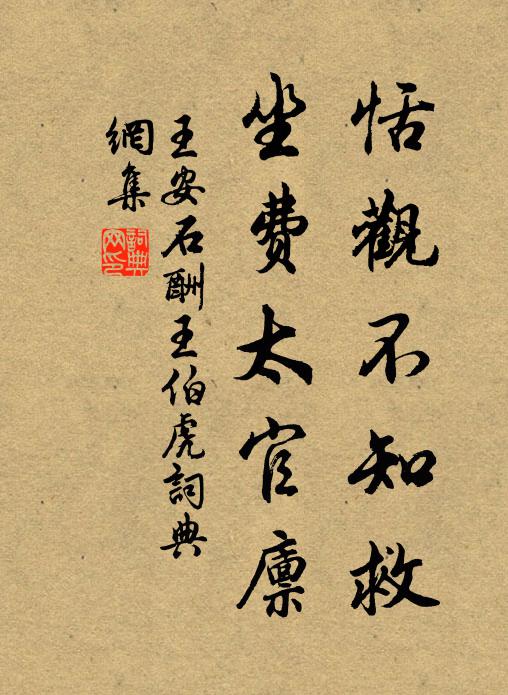 恬觀不知救
坐費太官廪
王安石酬王伯虎詞典
網集
詞典
网印